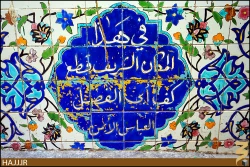 في هذا
المكان الشريف قطع
كف أبي الفضل
العباس الأيسر
HAJJ.IR